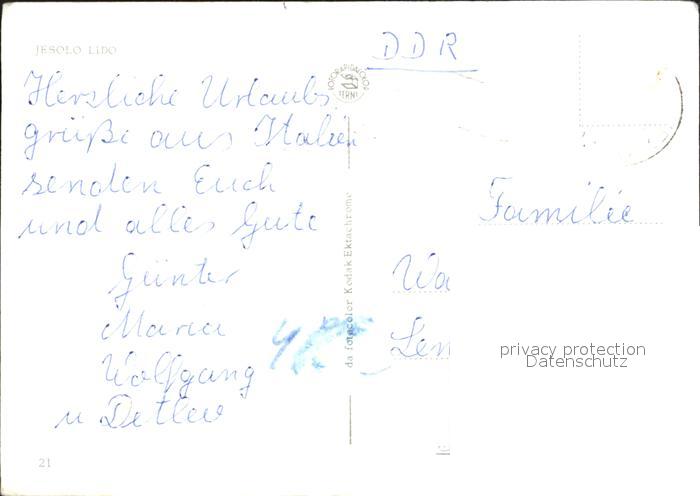 JESOLO LIDO
Herzliche Urlaubs
grüße aus Italien
senden Euch
und alles Gute
Günter
Maria
Wolfgang
u Detlev
21
da fotocolor Kodak Ektachrome
TERNI
DDR
Familie
Wa
Len
privacy protection
Datenschutz